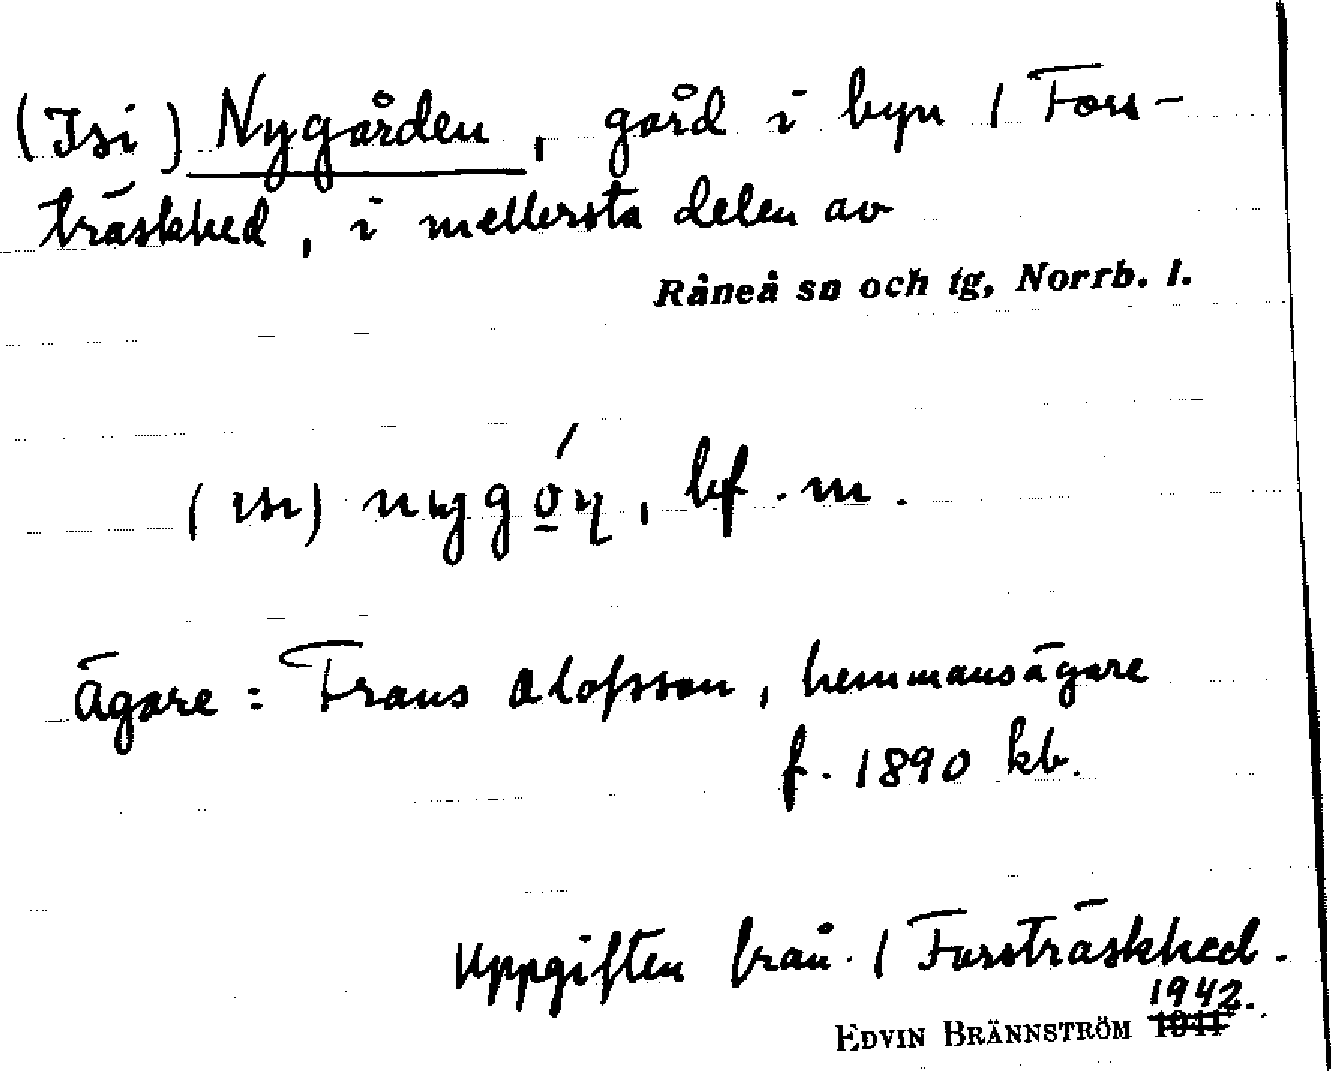 (Isi) Nygården, gård i byn / Fors-
träskhed, i mellersta delen av
Råneå sn och tg, Norrb. l.
(isi) nygó̱ɳ, bf. m.
Ägare: Frans Olofsson, hemmansägare
f. 1890 kb.
Uppgiften från / Forsträskhed.
1942.
EDVIN BRÄNNSTRÖM 1941